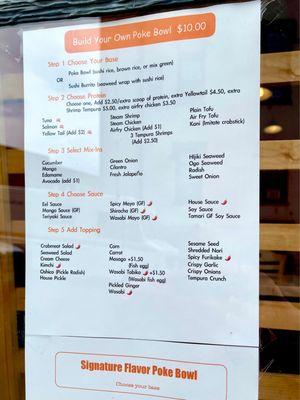 Build Your Own Poke Bowl $10.00
Step 1 Choose Your Base
Poke Bowl (sushi rice, brown rice, or mix green)
OR
Sushi Burrito (seaweed wrap with sushi rice)
Step 2 Choose Protein
Choose one, Add $2.50/extra scoop of protein, extra Yellowtail $4.50, extra
Shrimp Tempura $5.00, extra airfry chicken $3.50
Tuna Steam Shrimp Plain Tofu
Salmon Steam Chicken Air Fry Tofu
Yellow Tail (Add $2) Airfry Chicken (Add $1) Kani (Imitate crabstick)
3 Tempura Shrimps
(Add $2.50)
Step 3 Select Mix-Ins
Cucumber Green Onion Hijiki Seaweed
Mango Cilantro Ogo Seaweed
Edamame Fresh Jalapeño Radish
Avocado (add $1) Sweet Onion
Step 4 Choose Sauce
Eel Sauce Spicy Mayo (GF) House Sauce
Mango Sauce (GF) Shiracha (GF) Soy Sauce
Teriyaki Sauce Wasabi Mayo (GF) Tamari GF Soy Sauce
Step 5 Add Topping
Crabmeat Salad Corn Sesame Seed
Seaweed Salad Carrot Shredded Nori
Cream Cheese Masago +$1.50 Spicy Furikake
Kimchi (Fish egg) Crispy Garlic
Oshico (Pickle Radish) Wasabi Tobiko +$1.50 Crispy Onions
House Pickle (Wasabi fish egg) Tempura Crunch
Pickled Ginger
Wasabi
Signature Flavor Poke Bowl
Choose your base